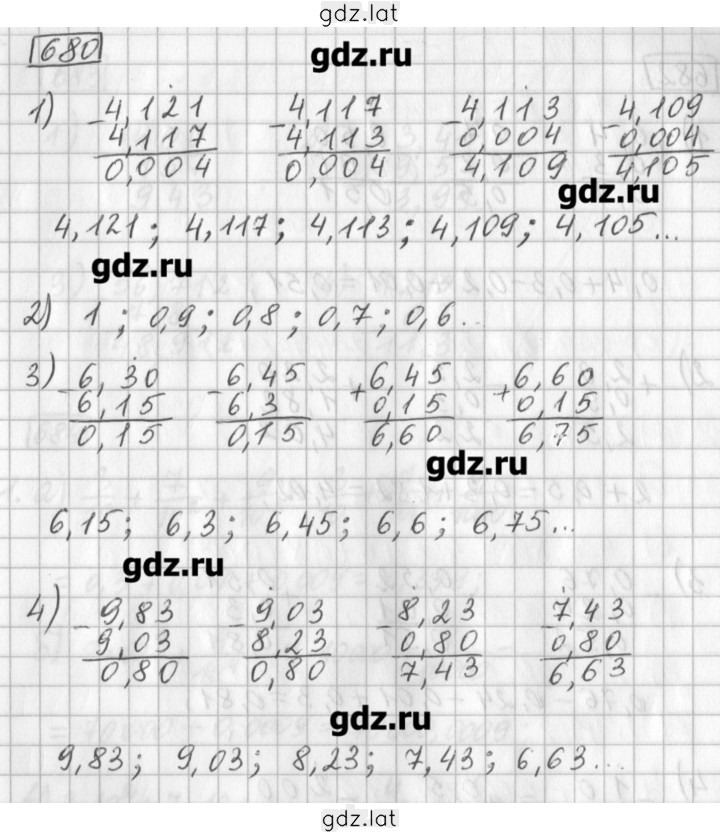 gdz.lat
680
gdz.ru
1) 4,121 4,117 4,113 4,109
- 4,117 - 4,113 - 0,004 - 0,004
0,004 0,004 4,109 4,105
gdz.ru
4,121; 4,117; 4,113; 4,109; 4,105...
gdz.ru
2) 1; 0,9; 0,8; 0,7; 0,6...
3) 6,30 6,45 6,45 6,60
- 6,15 - 6,3 + 0,15 + 0,15
0,15 0,15 6,60 6,75
gdz.ru
6,15; 6,3; 6,45; 6,6; 6,75...
gdz.ru
4) 9,83 9,03 8,23 7,43
- 9,03 - 8,23 - 0,80 - 0,80
0,80 0,80 7,43 6,63
gdz.ru
9,83; 9,03; 8,23; 7,43; 6,63...
gdz.lat